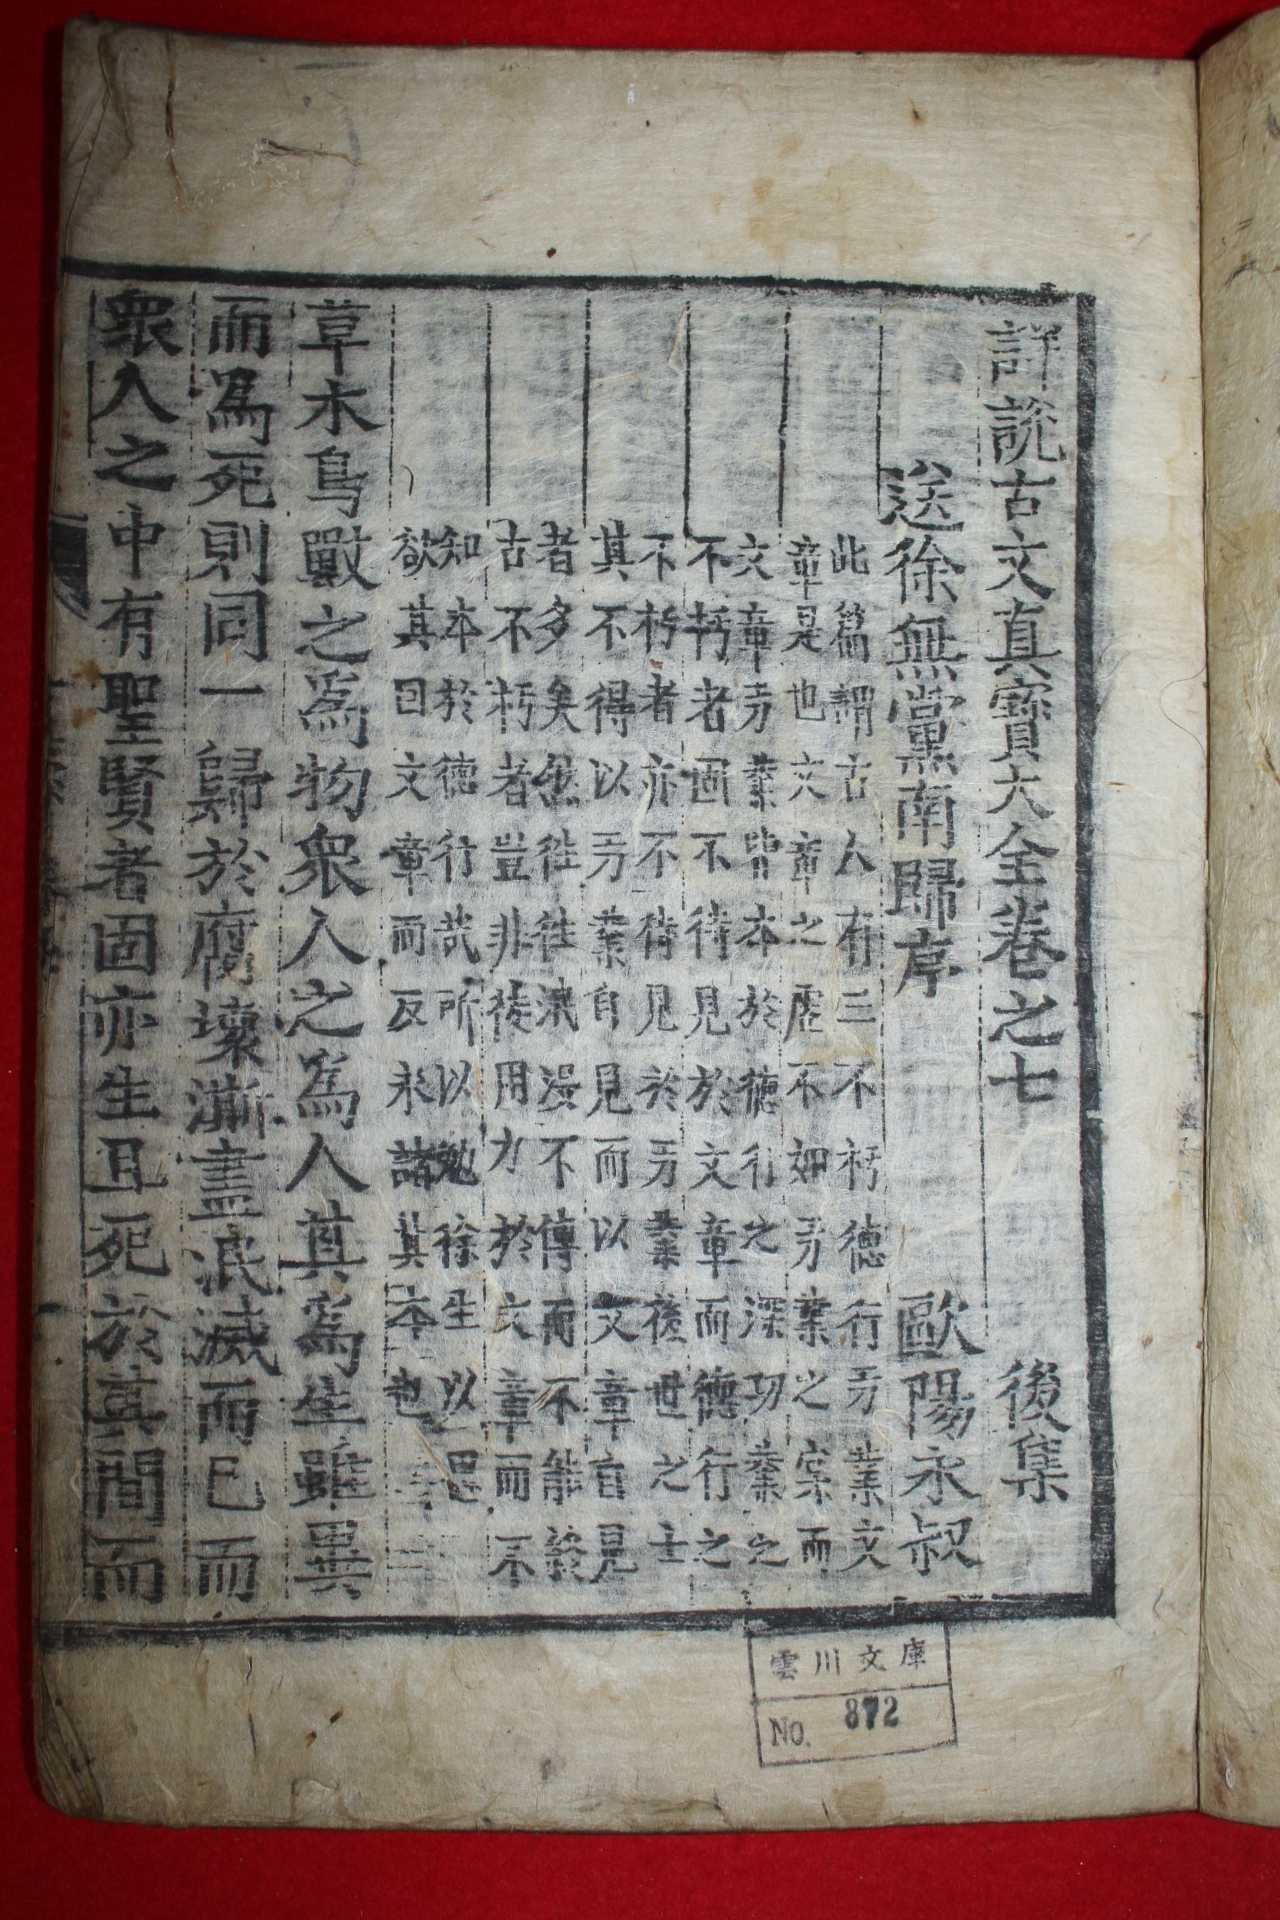 詳說古文真寶大全卷之七 後集
送徐無黨南歸序 歐陽永叔
此篇謂古人有三不朽德行另業文
章是也文章之虛不如另業之實而
文章另業皆本於德行之深功業之
不朽者固不待見於文章而德行之
不朽者亦不待見於另業後世之士
其不得以另業自見而以文章自見
者多矣然徃徃泯漫不傳而不能發
古不朽者豈非徒用力於文章而不
知本於德行哉所以勉徐生以思
欲其因文章而反求諸其本也
草木鳥獸之為物衆人之為人其為生雖異
而為死則同一歸於腐壞漸盡泯滅而已而
衆人之中有聖賢者固亦生且死於其間而
雲川文庫
No. 872